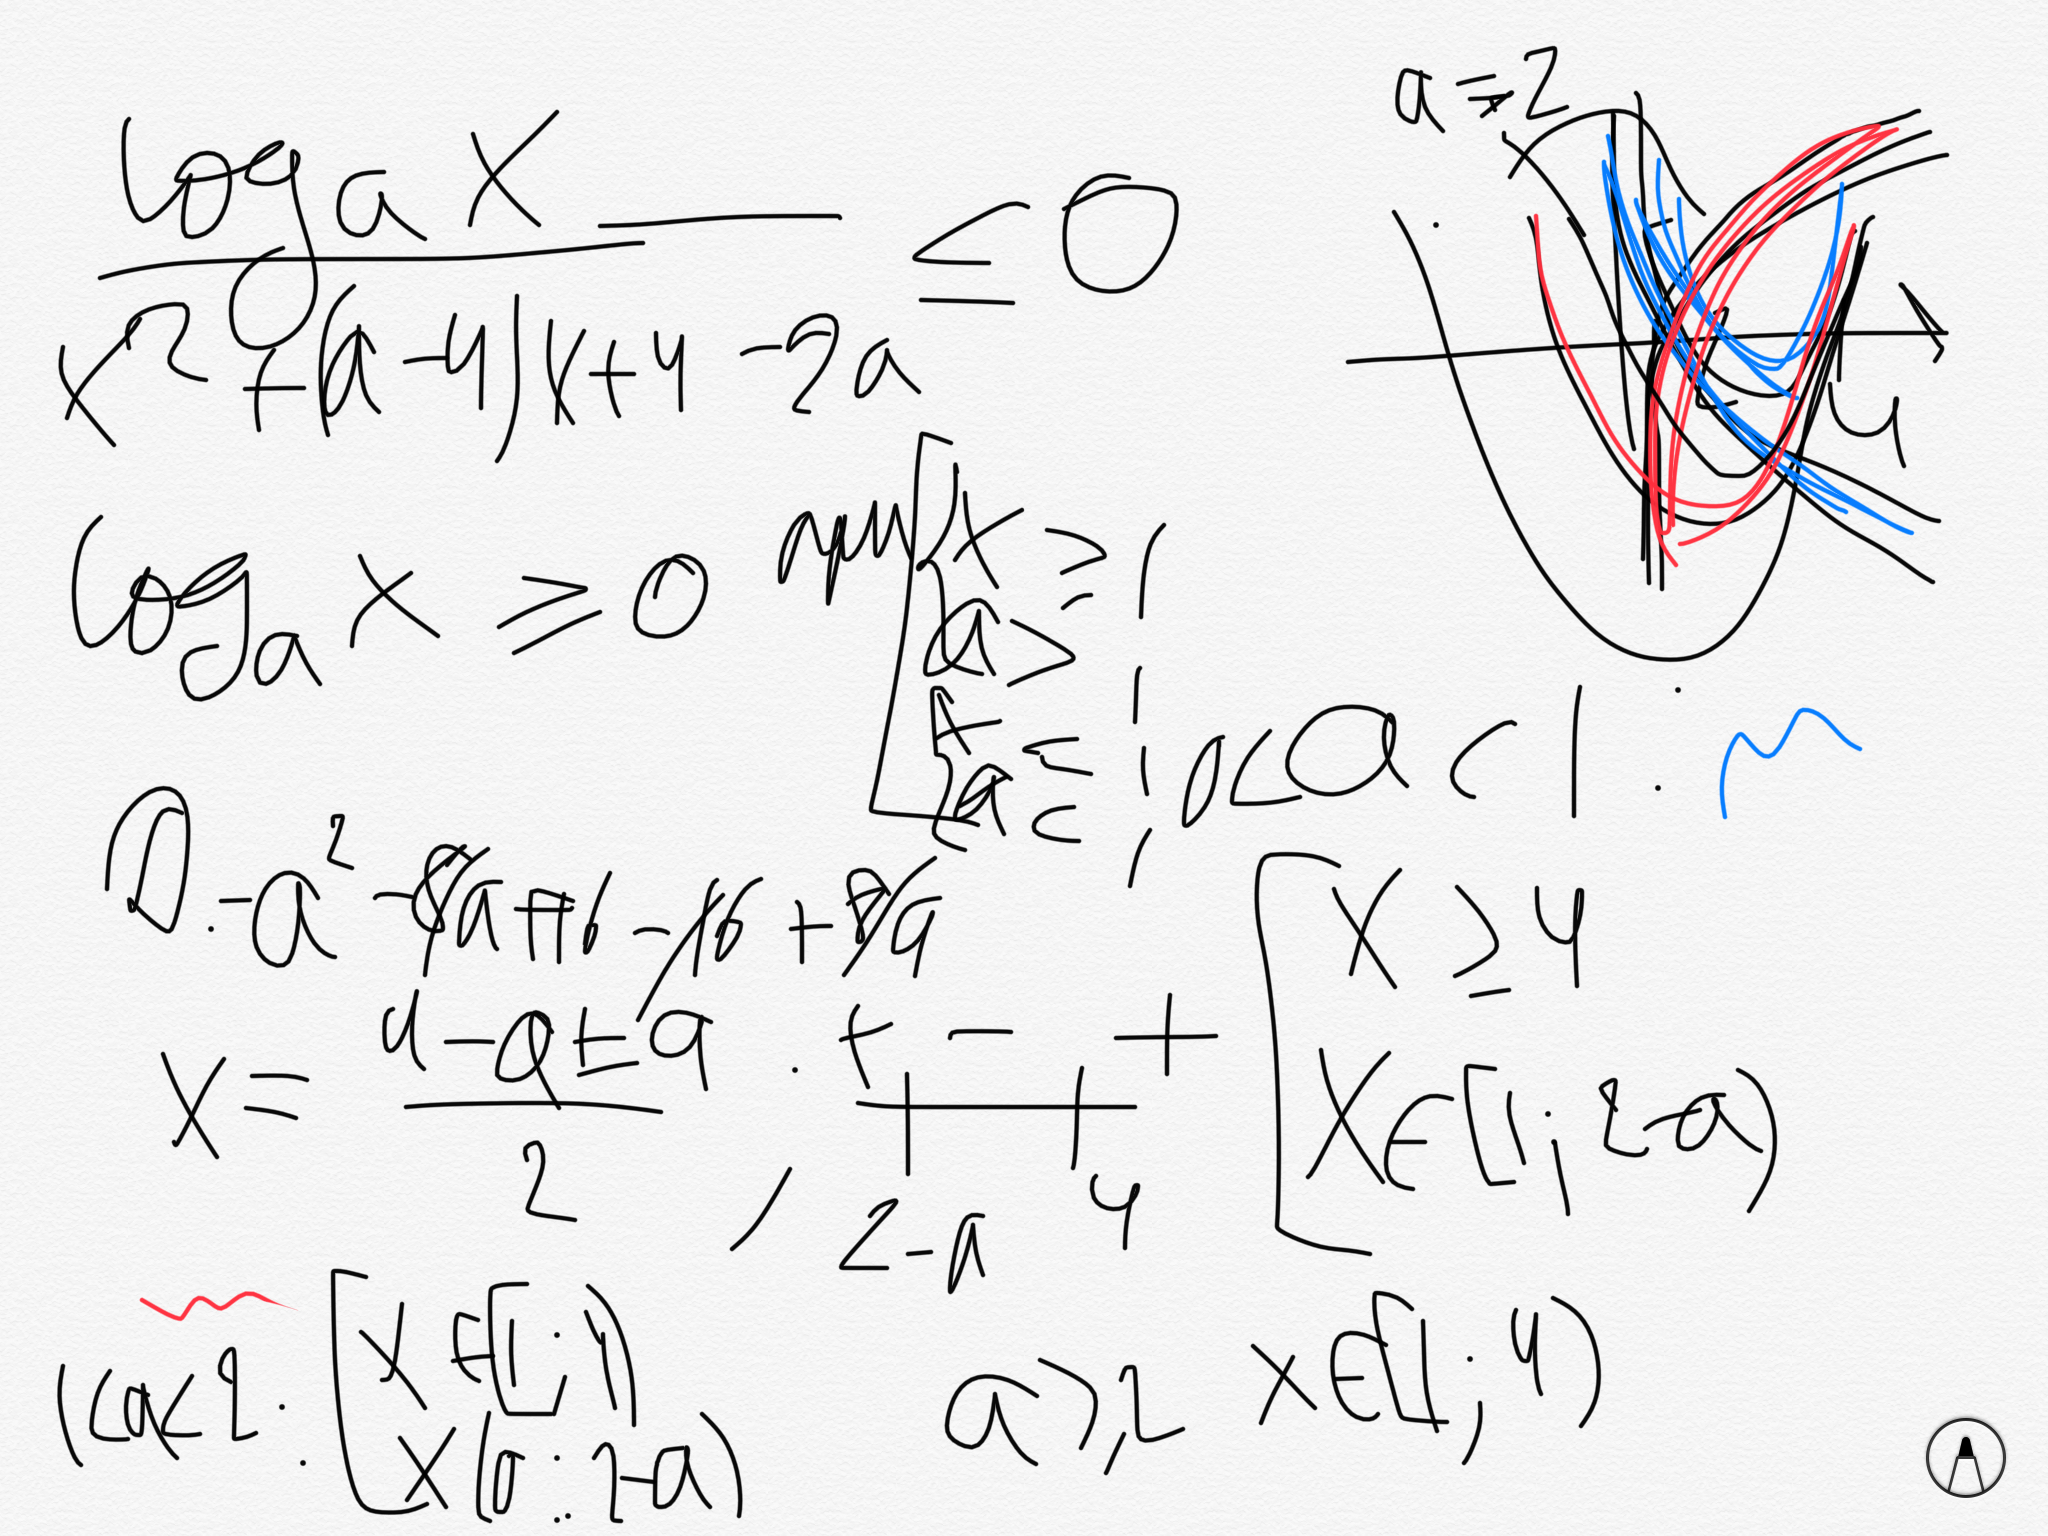 a = 2
log_a x ≤ 0
x² + (a - 4)x + 4 - 2a
2
4
log_a x ≥ 0 при x ≥ 1
a > 1
x ≤ 1
a < 1
0 < a < 1 :
D = a² - 8a + 16 - 16 + 8a
x ≥ 4
x = 4 - a ± a
2
+ - +
2 - a 4
x ∈ [1; 2 - a)
1 < a < 2 :
x ∈ [1; 4)
x (0; 2 - a)
a ≥ 2 x ∈ [1; 4)